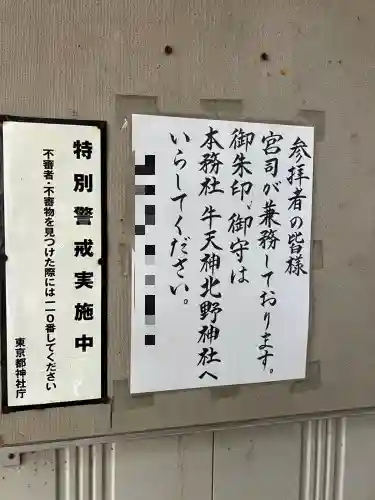 参拝者の皆様
宮司が兼務しております。
御朱印、御守は
本務社 牛天神北野神社へ
いらしてください。
特別警戒実施中
不審者・不審物を見つけた際には一一0番してください
東京都神社庁